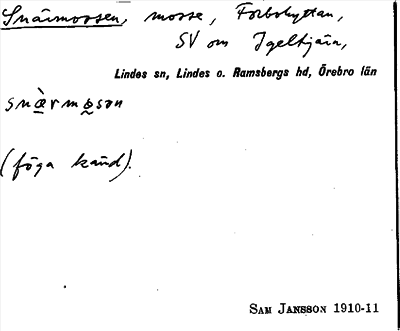 Snärmossen, mosse, Forbohyttan,
SV om Igeltjärn,
Lindes sn, Lindes o. Ramsbergs hd, Örebro län
snæ̀rmo̰sən
(föga känd).
SAM JANSSON 1910-11